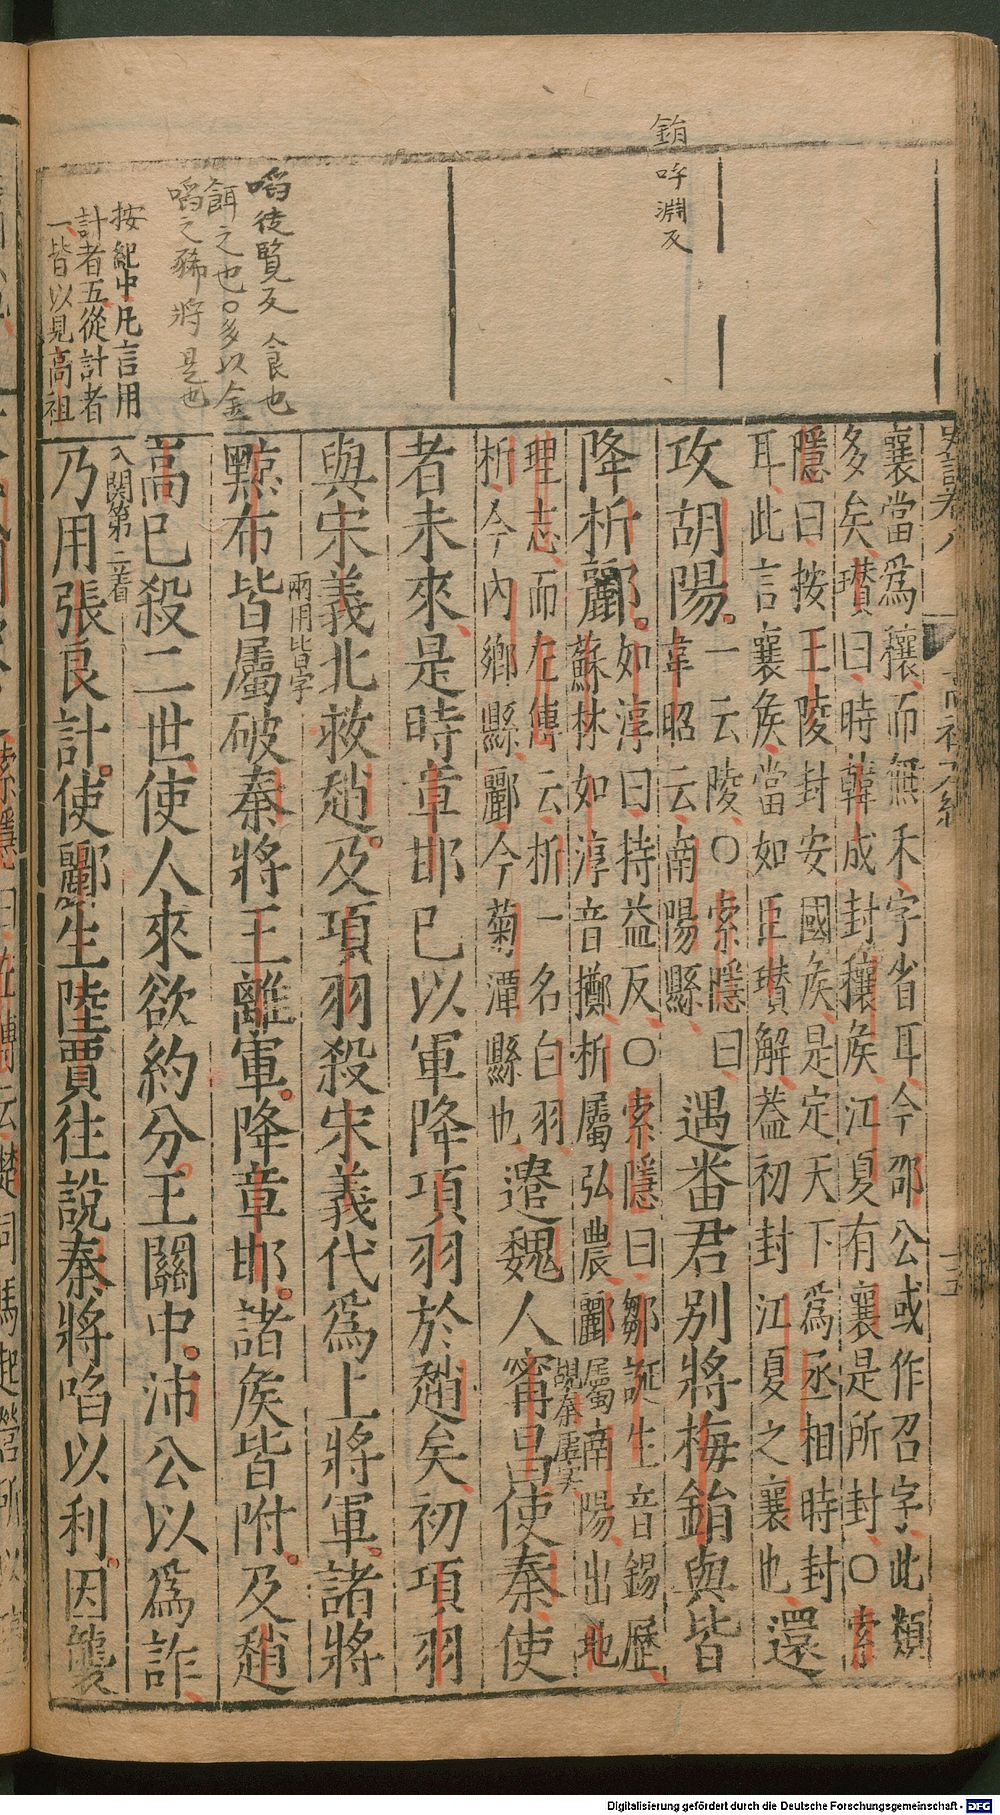 銷
呼淵反
啗徒覽反食也
餌之也○多以金
啗之豨將是也
按紀中凡言用
計者五從計者
一皆以見高祖
襄當爲穰而無禾字省耳今邵公或作召字此類
多矣瓚曰時韓成封穰侯江夏有襄是所封○索
隱曰按王陵封安國侯是定天下爲丞相時封
耳此言襄侯當如臣瓚解蓋初封江夏之襄也還
攻胡陽一云陵○索隱曰
韋昭云南陽縣遇番君别將梅鋗與皆
降析酈如淳曰持益反○索隱曰鄒誕生音錫歷
蘇林如淳音擲析屬弘農酈屬南陽出地
理志而左傳云析一名白羽
析今內鄉縣酈今菊潭縣也遣魏人甯昌使秦使
覘秦虛实
者未來是時章邯已以軍降項羽於趙矣初項羽
與宋義北救趙及項羽殺宋義代爲上將軍諸將
兩用皆字
黥布皆屬破秦將王離軍降章邯諸侯皆附及趙
高已殺二世使人來欲約分王關中沛公以爲詐
入關第二着
乃用張良計使酈生陸賈往說秦將啗以利因襲
史記卷八
高祖本紀
十五
Digitalisierung gefördert durch die Deutsche Forschungsgemeinschaft - DFG